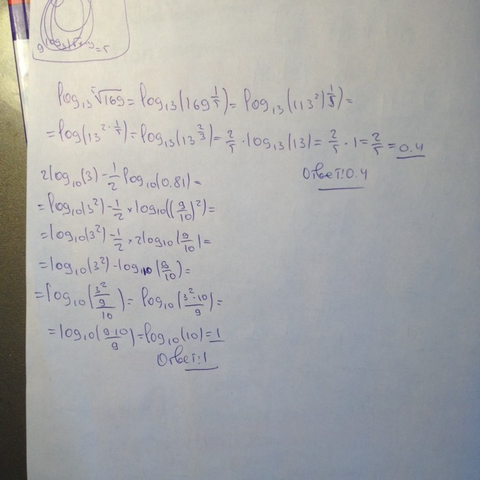 log₁₃ ⁵√169 = log₁₃(169^(1/5)) = log₁₃((13²)^(1/5)) =
= log(13^(2·1/5)) = log₁₃(13^(2/5)) = 2/5 · log₁₃(13) = 2/5 · 1 = 2/5 = 0.4
Ответ: 0.4
2log₁₀(3) - 1/2 log₁₀(0.81) =
= log₁₀(3²) - 1/2 × log₁₀((9/10)²) =
= log₁₀(3²) - 1/2 × 2log₁₀(9/10) =
= log₁₀(3²) - log₁₀(9/10) =
= log₁₀(3²/(9/10)) = log₁₀(3²·10/9) =
= log₁₀(9·10/9) = log₁₀(10) = 1
Ответ: 1